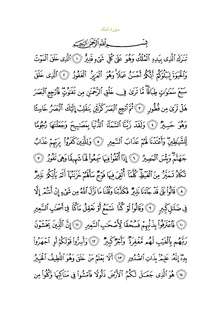 سورة الملك
بِسْمِ اللَّهِ الرَّحْمَٰنِ الرَّحِيمِ
تَبَٰرَكَ الَّذِي بِيَدِهِ الْمُلْكُ وَهُوَ عَلَىٰ كُلِّ شَيْءٍ قَدِيرٌ ١ الَّذِي خَلَقَ الْمَوْتَ
وَالْحَيَوٰةَ لِيَبْلُوَكُمْ أَيُّكُمْ أَحْسَنُ عَمَلًا وَهُوَ الْعَزِيزُ الْغَفُورُ ٢ الَّذِي خَلَقَ
سَبْعَ سَمَٰوَٰتٍ طِبَاقًا مَّا تَرَىٰ فِي خَلْقِ الرَّحْمَٰنِ مِن تَفَٰوُتٍ فَارْجِعِ الْبَصَرَ
هَلْ تَرَىٰ مِن فُطُورٍ ٣ ثُمَّ ارْجِعِ الْبَصَرَ كَرَّتَيْنِ يَنقَلِبْ إِلَيْكَ الْبَصَرُ خَاسِئًا
وَهُوَ حَسِيرٌ ٤ وَلَقَدْ زَيَّنَّا السَّمَاءَ الدُّنْيَا بِمَصَٰبِيحَ وَجَعَلْنَٰهَا رُجُومًا
لِّلشَّيَٰطِينِ وَأَعْتَدْنَا لَهُمْ عَذَابَ السَّعِيرِ ٥ وَلِلَّذِينَ كَفَرُوا بِرَبِّهِمْ عَذَابُ
جَهَنَّمَ وَبِئْسَ الْمَصِيرُ ٦ إِذَا أُلْقُوا فِيهَا سَمِعُوا لَهَا شَهِيقًا وَهِيَ تَفُورُ ٧
تَكَادُ تَمَيَّزُ مِنَ الْغَيْظِ كُلَّمَا أُلْقِيَ فِيهَا فَوْجٌ سَأَلَهُمْ خَزَنَتُهَا أَلَمْ يَأْتِكُمْ نَذِيرٌ ٨
قَالُوا بَلَىٰ قَدْ جَاءَنَا نَذِيرٌ فَكَذَّبْنَا وَقُلْنَا مَا نَزَّلَ اللَّهُ مِن شَيْءٍ إِنْ أَنتُمْ إِلَّا
فِي ضَلَٰلٍ كَبِيرٍ ٩ وَقَالُوا لَوْ كُنَّا نَسْمَعُ أَوْ نَعْقِلُ مَا كُنَّا فِي أَصْحَٰبِ السَّعِيرِ
١٠ فَاعْتَرَفُوا بِذَنبِهِمْ فَسُحْقًا لِّأَصْحَٰبِ السَّعِيرِ ١١ إِنَّ الَّذِينَ يَخْشَوْنَ
رَبَّهُم بِالْغَيْبِ لَهُم مَّغْفِرَةٌ وَأَجْرٌ كَبِيرٌ ١٢ وَأَسِرُّوا قَوْلَكُمْ أَوِ اجْهَرُوا
بِهِ إِنَّهُ عَلِيمٌ بِذَاتِ الصُّدُورِ ١٣ أَلَا يَعْلَمُ مَنْ خَلَقَ وَهُوَ اللَّطِيفُ الْخَبِيرُ
١٤ هُوَ الَّذِي جَعَلَ لَكُمُ الْأَرْضَ ذَلُولًا فَامْشُوا فِي مَنَاكِبِهَا وَكُلُوا مِن